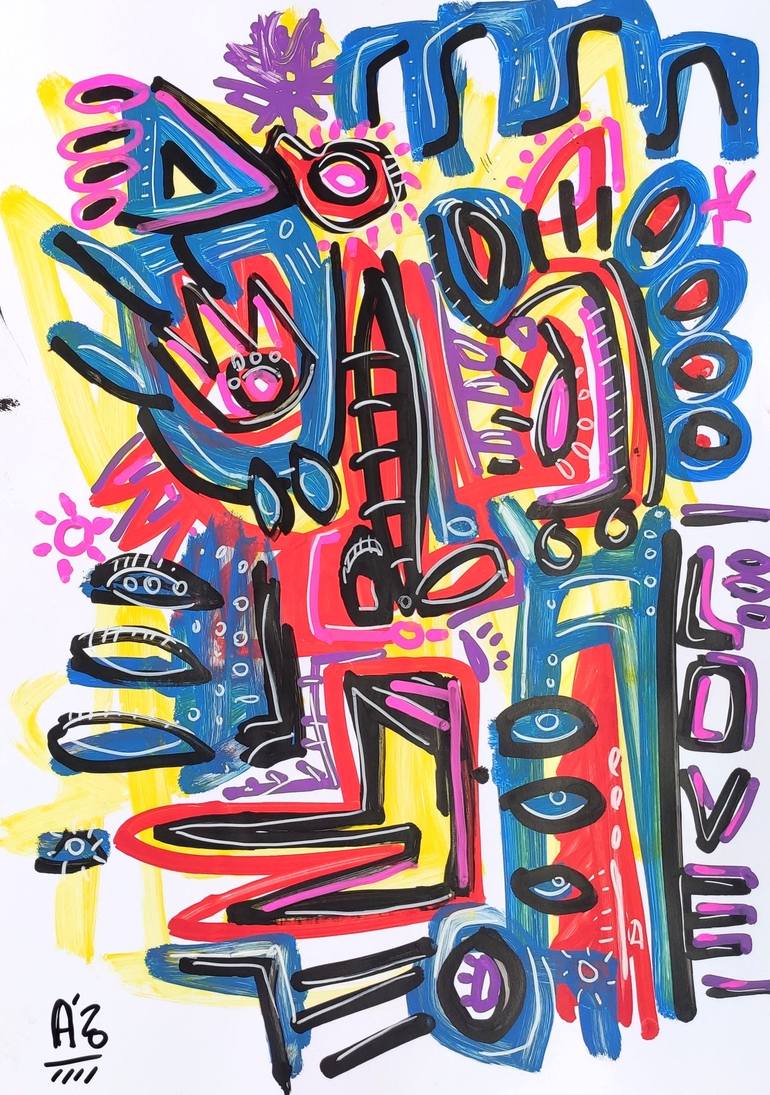 LOVE
A'z